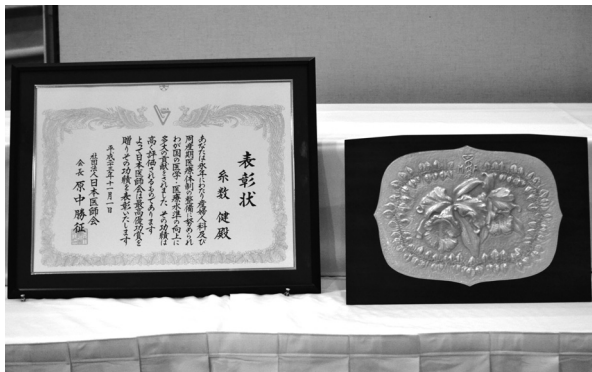 表彰状
糸数 健殿
あなたは永年にわたり産婦人科及び
周産期医療体制の整備に努められ
わが国の医学・医療水準の向上に
多大の貢献をされました その功績は
高く評価されるものであります
よって日本医師会は最高優功賞を
贈りその功績を表彰いたします
平成二十三年十一月一日
社団法人日本医師会
会長 原中勝征